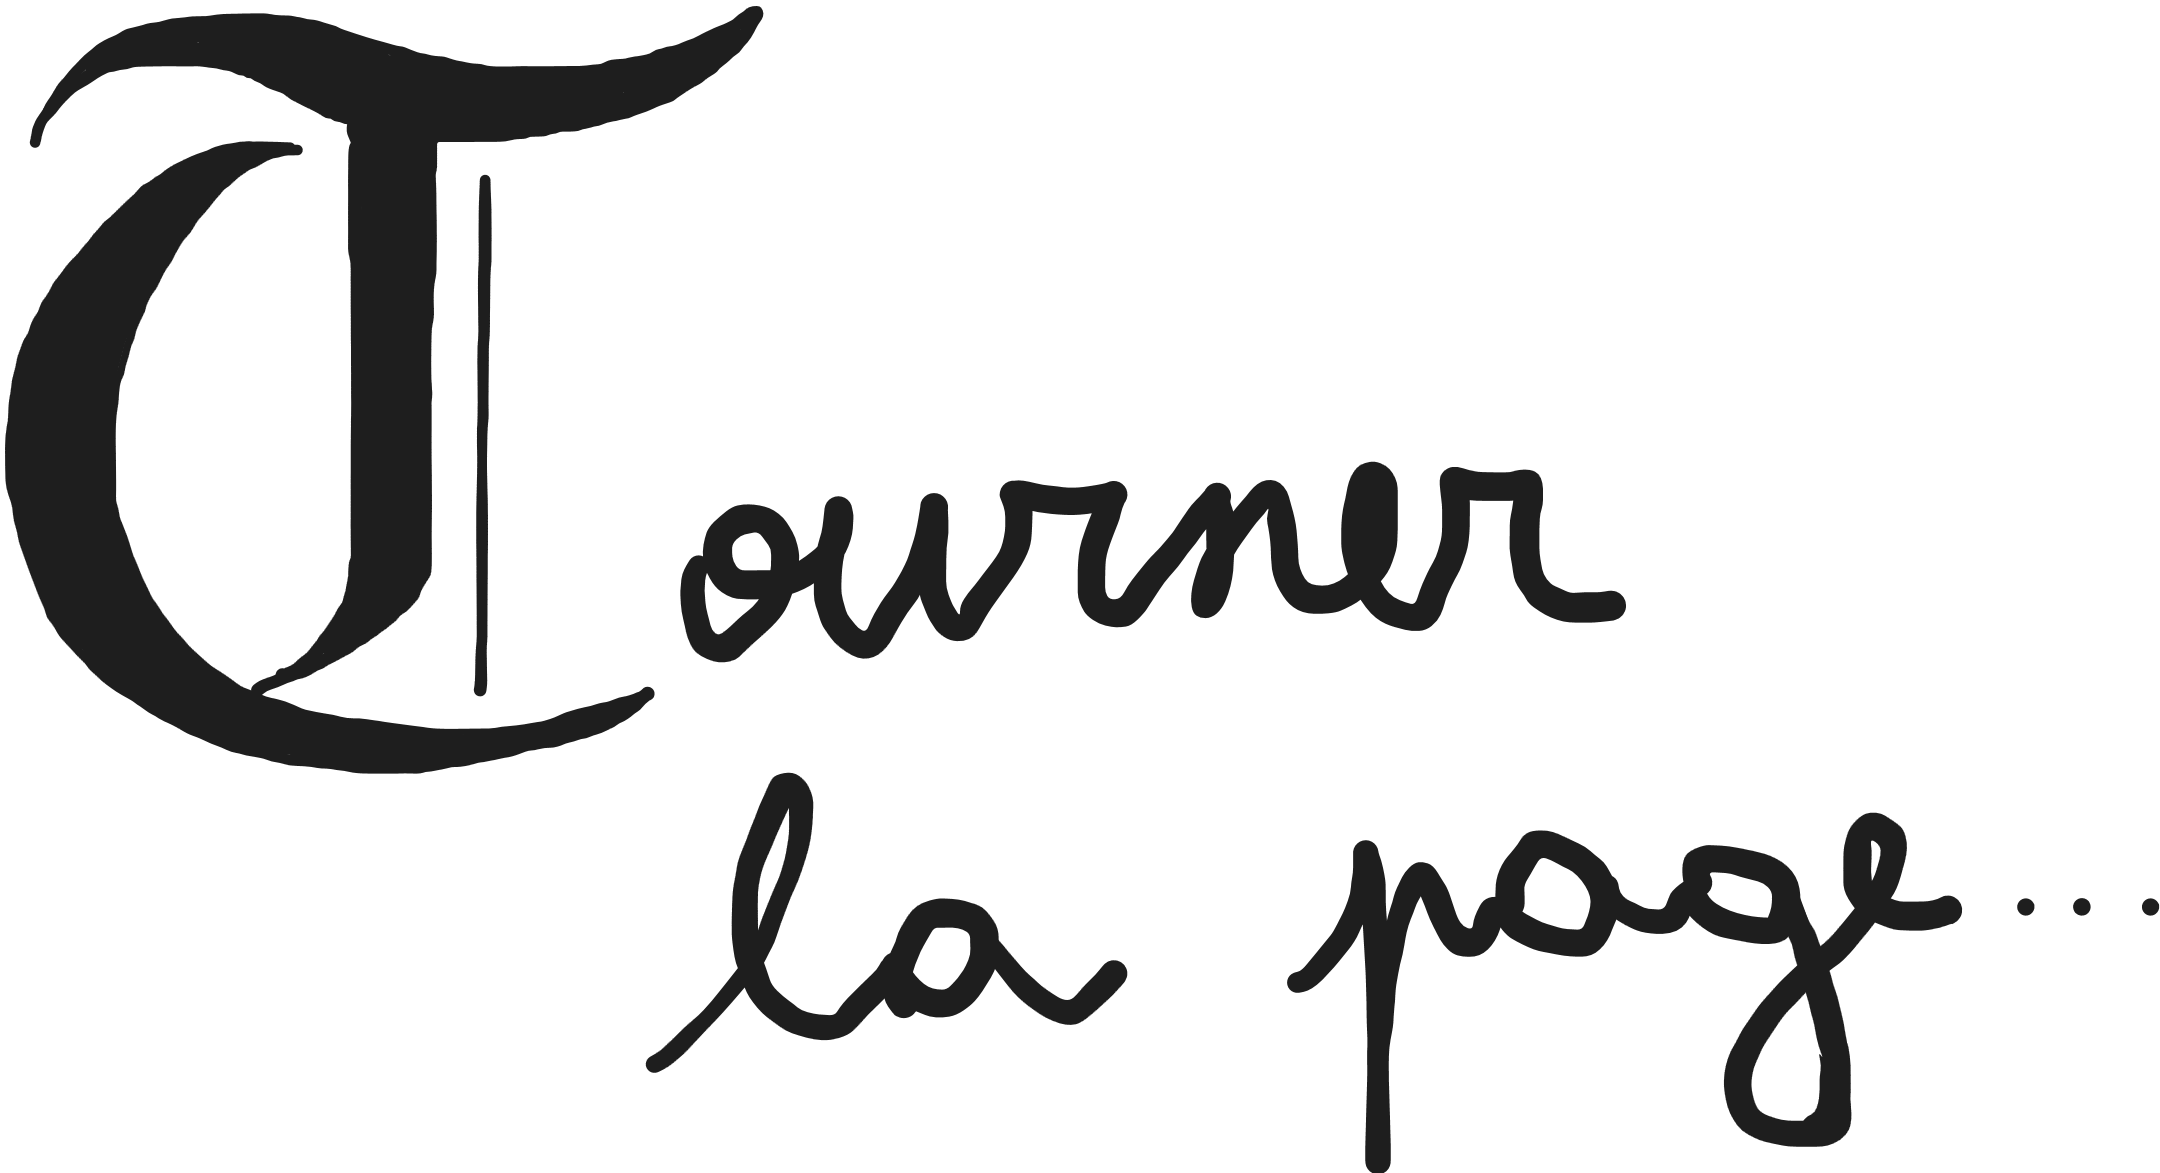 Tourner
la page...